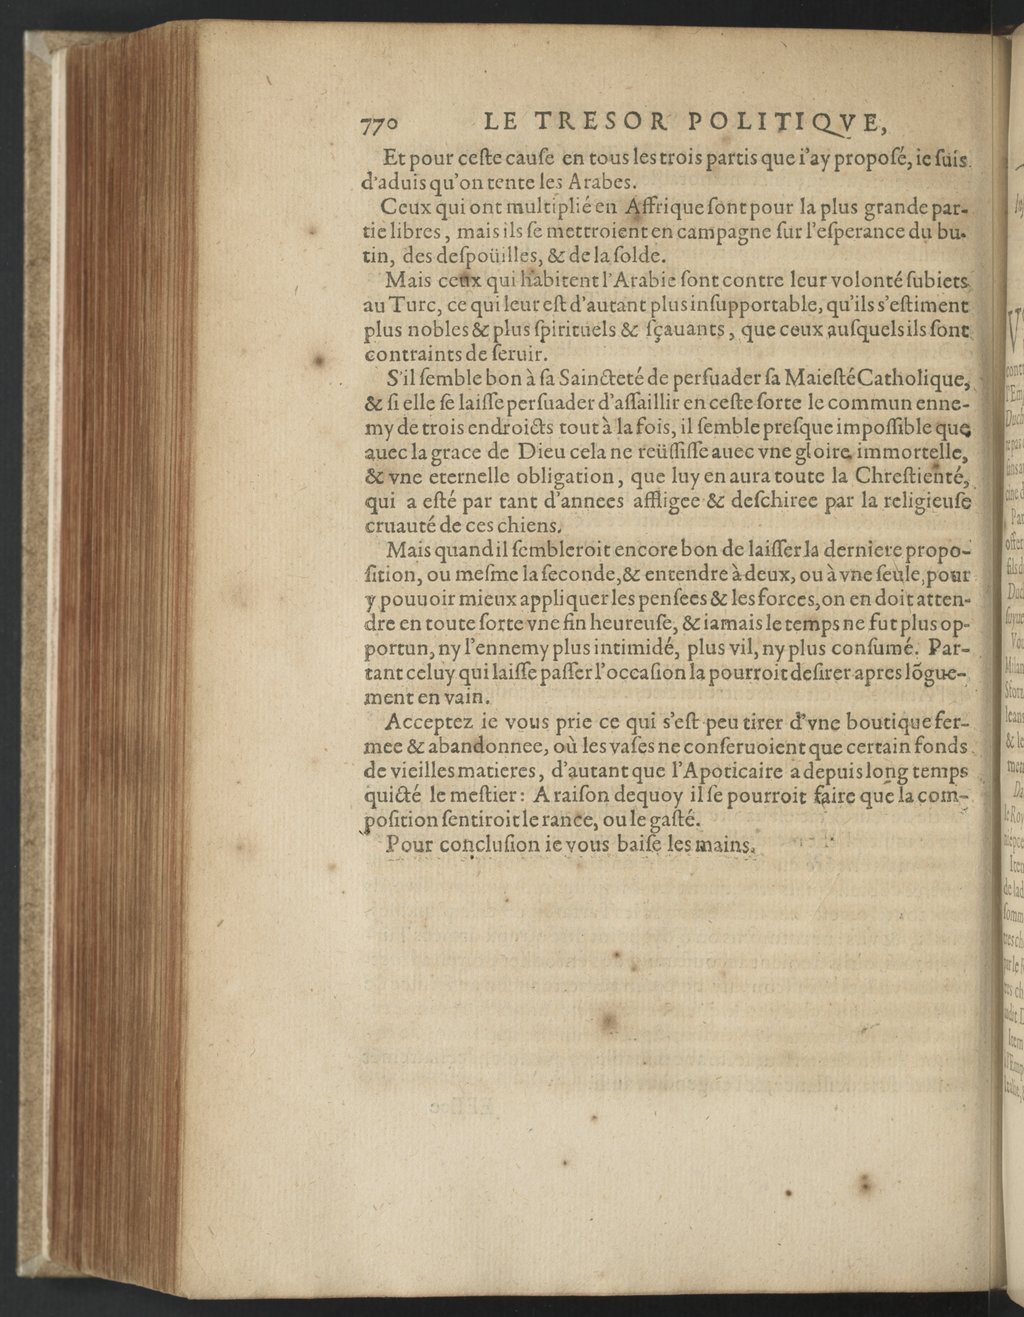 770 LE TRESOR POLITIQVE,
Et pour ceſte cauſe en tous les trois partis que i'ay propoſé, ie ſuis
d'aduis qu'on tente les Arabes.
Ceux qui ont multiplié en Affrique ſont pour la plus grande par-
tie libres, mais ils ſe mettroient en campagne ſur l'eſperance du bu-
tin, des deſpoüilles, & de la ſolde.
Mais ceux qui habitent l'Arabie ſont contre leur volonté ſubiets
au Turc, ce qui leur eſt d'autant plus inſupportable, qu'ils s'eſtiment
plus nobles & plus ſpirituels & ſçauants, que ceux auſquels ils ſont
contraints de ſeruir.
S'il ſemble bon à ſa Saincteté de perſuader ſa Maieſté Catholique,
& ſi elle ſe laiſſe perſuader d'aſſaillir en ceſte ſorte le commun enne-
my de trois endroicts tout à la fois, il ſemble preſque impoſſible que
auec la grace de Dieu cela ne reüſſiſſe auec vne gloire immortelle,
& vne eternelle obligation, que luy en aura toute la Chreſtienté,
qui a eſté par tant d'annees affligee & deſchiree par la religieuſe
cruauté de ces chiens.
Mais quand il ſembleroit encore bon de laiſſer la derniere propo-
ſition, ou meſme la ſeconde, & entendre à deux, ou à vne ſeule, pour
y pouuoir mieux appliquer les penſees & les forces, on en doit atten-
dre en toute ſorte vne fin heureuſe, & iamais le temps ne fut plus op-
portun, ny l'ennemy plus intimidé, plus vil, ny plus conſumé. Par-
tant celuy qui laiſſe paſſer l'occaſion la pourroit deſirer apres lõgue-
ment en vain.
Acceptez ie vous prie ce qui s'eſt peu tirer d'vne boutique fer-
mee & abandonnee, où les vaſes ne conſeruoient que certain fonds
de vieilles matieres, d'autant que l'Apoticaire a depuis long temps
quicté le meſtier: A raiſon dequoy il ſe pourroit faire que la com-
poſition ſentiroit le rance, ou le gaſté.
Pour concluſion ie vous baiſe les mains.